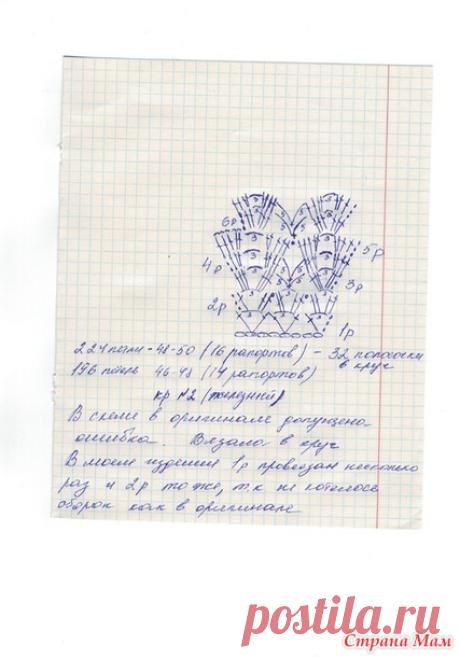 6р
5р
4р
3р
2р
1р
224 петли - 48-50 (16 рапортов) - 32 полосочки
в круг
196 петель 46-48 (14 рапортов)
кр №2
В схеме в оригинале допущена
ошибка. Вязала в круг
В моем изделии 1р провязан несколько
раз и 2р тоже, т.к не хотелось
оборок как в оригинале
postila.ru
Страна Мам